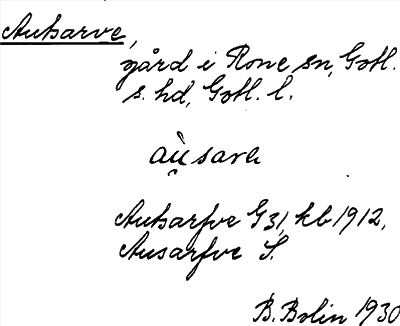 Autsarve,
gård i Rone sn, Gotl.
s. hd, Gotl. l.
au̯sarva
Autsarfve G31, kb 1912,
Ausarfve S.
B. Bolin 1930